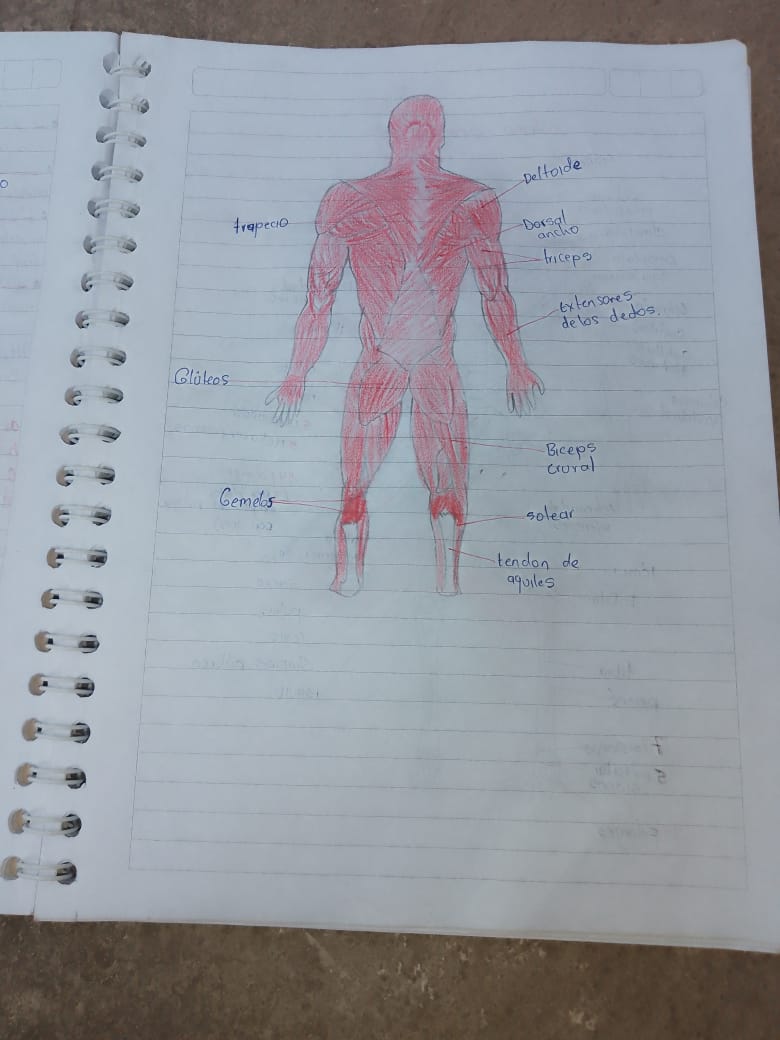 Deltoide
trapecio
Dorsal
ancho
triceps
Extensores
de los dedos.
Glúteos
Biceps
crural
Gemelos
solear
tendon de
aquiles